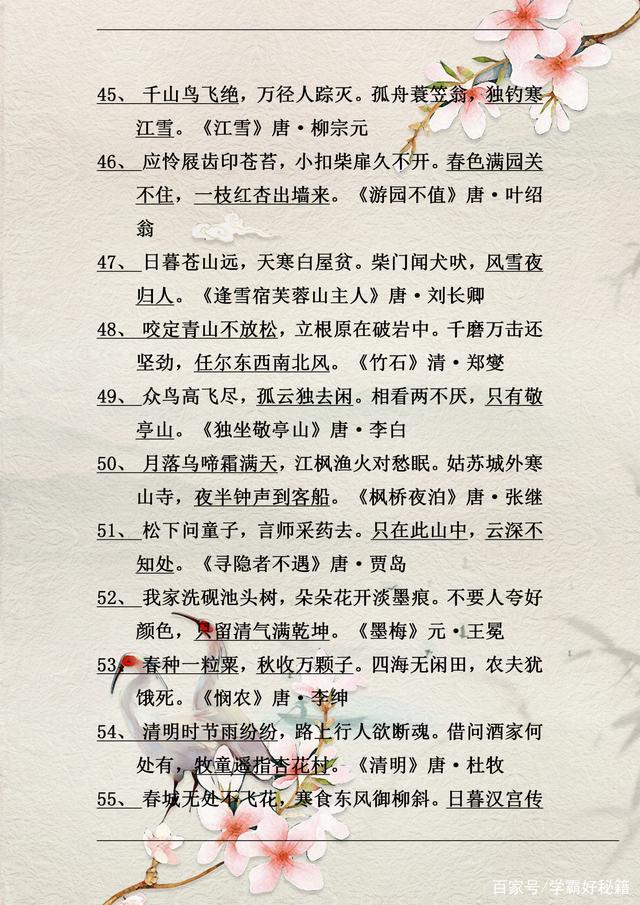 45、 千山鸟飞绝，万径人踪灭。孤舟蓑笠翁，独钓寒
江雪。《江雪》唐·柳宗元
46、 应怜屐齿印苍苔，小扣柴扉久不开。春色满园关
不住，一枝红杏出墙来。《游园不值》唐·叶绍
翁
47、 日暮苍山远，天寒白屋贫。柴门闻犬吠，风雪夜
归人。《逢雪宿芙蓉山主人》唐·刘长卿
48、 咬定青山不放松，立根原在破岩中。千磨万击还
坚劲，任尔东西南北风。《竹石》清·郑燮
49、 众鸟高飞尽，孤云独去闲。相看两不厌，只有敬
亭山。《独坐敬亭山》唐·李白
50、 月落乌啼霜满天，江枫渔火对愁眠。姑苏城外寒
山寺，夜半钟声到客船。《枫桥夜泊》唐·张继
51、 松下问童子，言师采药去。只在此山中，云深不
知处。《寻隐者不遇》唐·贾岛
52、 我家洗砚池头树，朵朵花开淡墨痕。不要人夸好
颜色，只留清气满乾坤。《墨梅》元·王冕
53、 春种一粒粟，秋收万颗子。四海无闲田，农夫犹
饿死。《悯农》唐·李绅
54、 清明时节雨纷纷，路上行人欲断魂。借问酒家何
处有，牧童遥指杏花村。《清明》唐·杜牧
55、 春城无处不飞花，寒食东风御柳斜。日暮汉宫传
百家号/学霸好秘籍